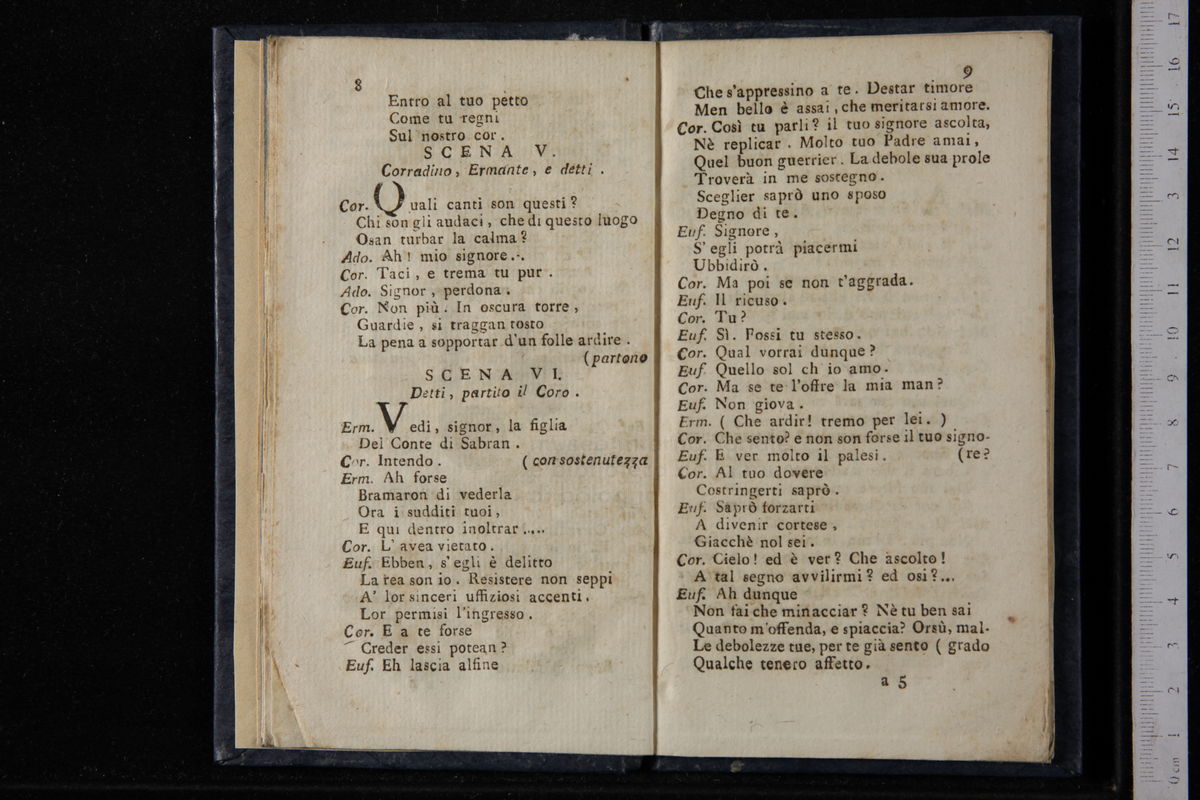 8
Entro al tuo petto
Come tu regni
Sul nostro cor.
SCENA V.
Corradino, Ermante, e detti.
Cor. Quali canti son questi?
Chi son gli audaci, che di questo luogo
Osan turbar la calma?
Ado. Ah! mio signore...
Cor. Taci, e trema tu pur.
Ado. Signor, perdona.
Cor. Non più. In oscura torre,
Guardie, si traggan tosto
La pena a sopportar d'un folle ardire.
(partono
SCENA VI.
Detti, partito il Coro.
Erm. Vedi, signor, la figlia
Del Conte di Sabran.
Cor. Intendo. (con sostenutezza
Erm. Ah forse
Bramaron di vederla
Ora i sudditi tuoi,
E qui dentro inoltrar.....
Cor. L' avea vietato.
Euf. Ebben, s'egli è delitto
La rea son io. Resistere non seppi
A' lor sinceri uffiziosi accenti.
Lor permisi l'ingresso.
Cor. E a te forse
Creder essi potean?
Euf. Eh lascia alfine
9
Che s'appressino a te. Destar timore
Men bello è assai, che meritarsi amore.
Cor. Così tu parli? il tuo signore ascolta,
Nè replicar. Molto tuo Padre amai,
Quel buon guerrier. La debole sua prole
Troverà in me sostegno.
Sceglier saprò uno sposo
Degno di te.
Euf. Signore,
S' egli potrà piacermi
Ubbidirò.
Cor. Ma poi se non t'aggrada.
Euf. Il ricuso.
Cor. Tu?
Euf. Sì. Fossi tu stesso.
Cor. Qual vorrai dunque?
Euf. Quello sol ch io amo.
Cor. Ma se te l'offre la mia man?
Euf. Non giova.
Erm. ( Che ardir! tremo per lei. )
Cor. Che sento? e non son forse il tuo signo-
Euf. E ver molto il palesi. (re?
Cor. Al tuo dovere
Costringerti saprò.
Euf. Saprò forzarti
A divenir cortese,
Giacchè nol sei.
Cor. Cielo! ed è ver? Che ascolto!
A tal segno avvilirmi? ed osi?...
Euf. Ah dunque
Non fai che minacciar? Nè tu ben sai
Quanto m'offenda, e spiaccia? Orsù, mal-
Le debolezze tue, per te già sento ( grado
Qualche tenero affetto.
a 5
17
16
15
14
13
12
11
10
9
8
7
6
5
4
3
2
1
0 cm